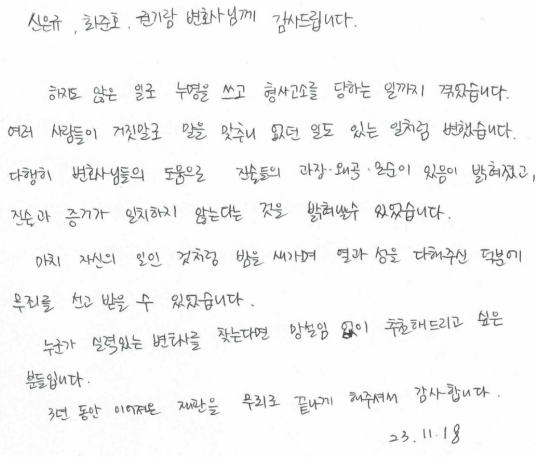 신은규, 최준호, 권기랑 변호사님께 감사드립니다.
하지도 않은 일로 누명을 쓰고 형사고소를 당하는 일까지 겪었습니다.
여러 사람들이 거짓말로 말을 맞추니 없던 일도 있는 일처럼 변했습니다.
다행히 변호사님들의 도움으로 진술들의 과장·왜곡·모순이 있음이 밝혀졌고,
진술과 증거가 일치하지 않는다는 것을 밝혀낼수 있었습니다.
마치 자신의 일인 것처럼 밤을 새가며 열과 성을 다해주신 덕분에
무죄를 선고 받을 수 있었습니다.
누군가 실력있는 변호사를 찾는다면 망설임 없이 추천해드리고 싶은
분들입니다.
3년 동안 이어져온 재판을 무죄로 끝나게 해주셔서 감사합니다.
23.11.18